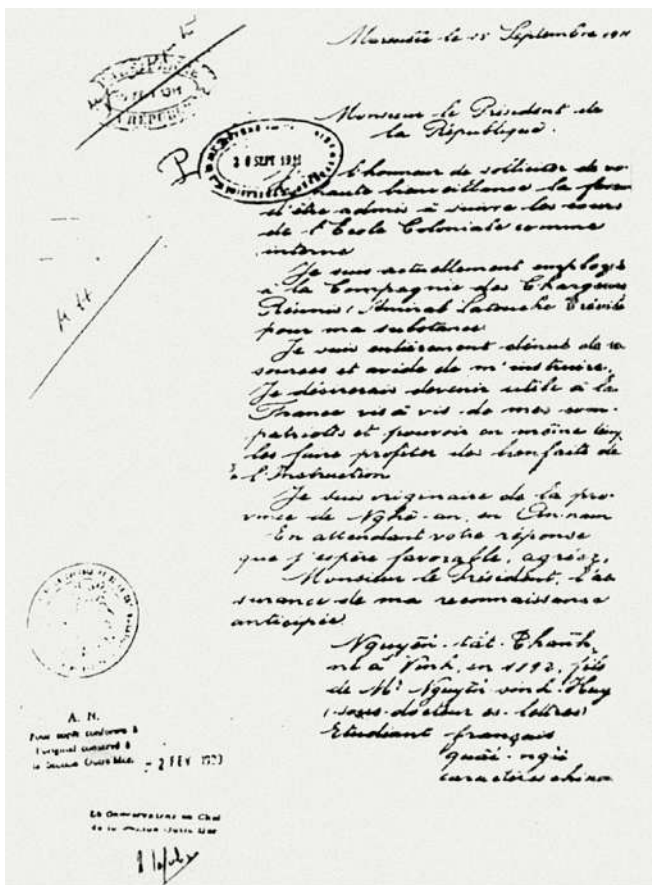 Marseille le 15 Septembre 1911
Monsieur le Président de
la République.
l'honneur de solliciter de vo
haute bienveillance la faveur
d'être admis à suivre les cours
de l'Ecole Coloniale comme
interne
Je suis actuellement employé
à la Compagnie des Chargeurs
Réunis (Amiral Latouche Tréville
pour ma substance
Je suis entièrement dénué de re
sources et avide de m'instruire.
Je désirerais devenir utile à la
France vis à vis de mes com-
patriotes et pouvoir en même temp
les faire profiter des bienfaits de
l'Instruction
Je suis originaire de la pro-
vince de Nghê-an, en Annam
En attendant votre réponse
que j'espère favorable, agréez,
Monsieur le Président, l'as
surance de ma reconnaissance
anticipée
Nguyên-tât-Thanh,
né à Vinh, en 1892, fils
de Mr Nguyên sinh Huy
(sous-docteur ès-lettres)
Etudiant français
quôc-ngu
caractères chinois
30 SEPT 1911
A. N.
Pour copie conforme à
l'original conservé à
la Section Outre Mer.
- 2 FEV
Le Conservateur en Chef
de la Section Outre Mer